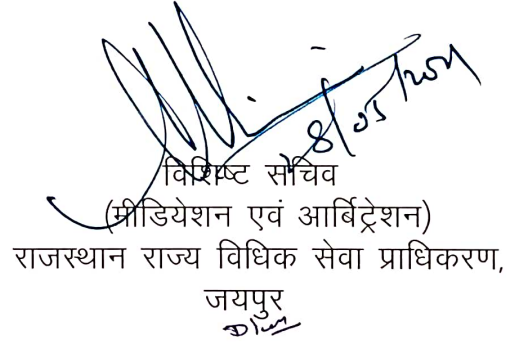 28/05/2021
विशिष्ट सचिव
(मीडियेशन एवं आर्बिट्रेशन)
राजस्थान राज्य विधिक सेवा प्राधिकरण,
जयपुर